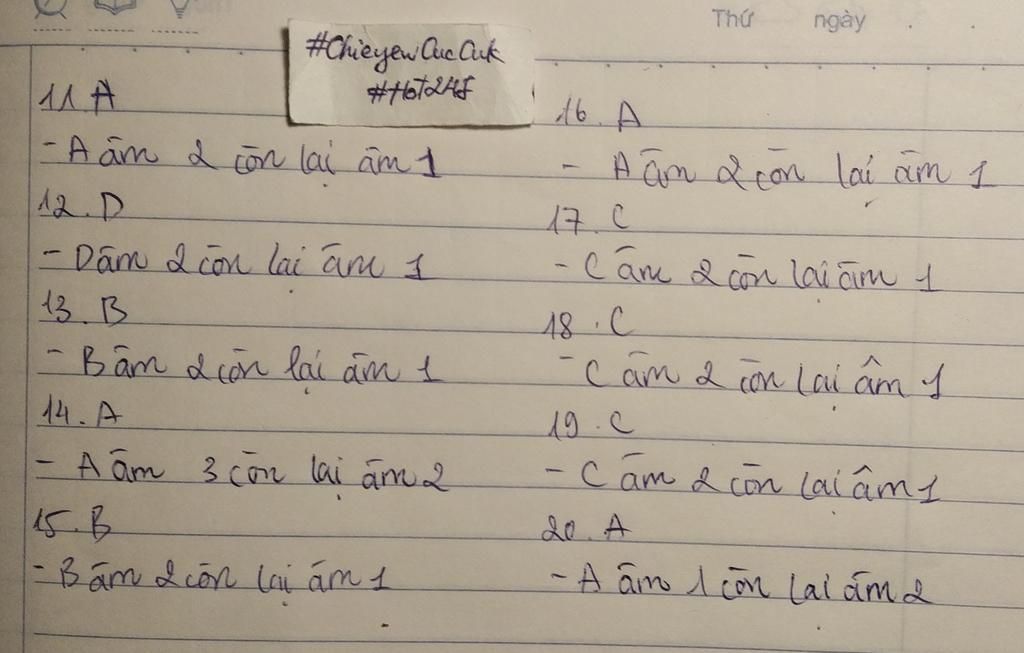 Thứ ngày
#ChieyewCucCuk
#Hot247
11. A
- A âm 2 còn lại âm 1
12. D
- D âm 2 còn lại âm 1
13. B
- B âm 2 còn lại âm 1
14. A
- A âm 3 còn lại âm 2
15. B
- B âm 2 còn lại âm 1
16. A
- A âm 2 còn lại âm 1
17. C
- C âm 2 còn lại âm 1
18. C
- C âm 2 còn lại âm 1
19. C
- C âm 2 còn lại âm 1
20. A
- A âm 1 còn lại âm 2